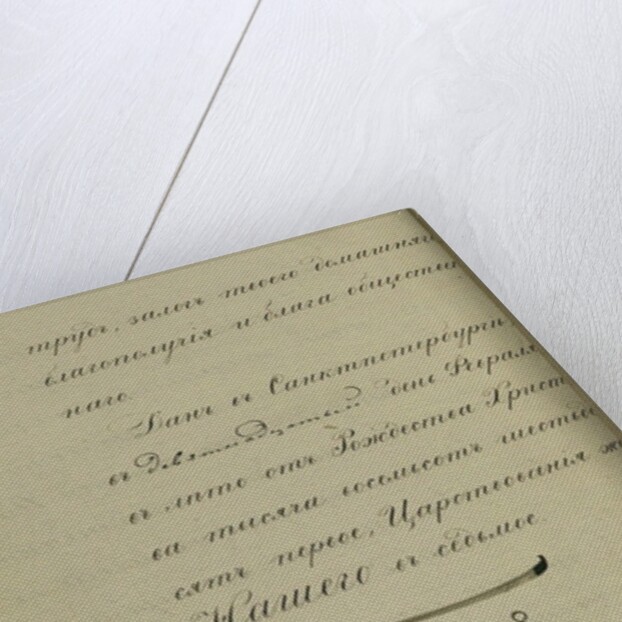 трудъ, залогъ твоего домашняго
благополучія и блага обществен
наго.
Данъ въ Санктпетербургѣ,
въ девятнадцатый день Февраля,
въ лѣто отъ Рождества Христ
ва тысяча восемьсотъ шестьде
сятъ первое, Царствованія же
Нашего въ седьмое.